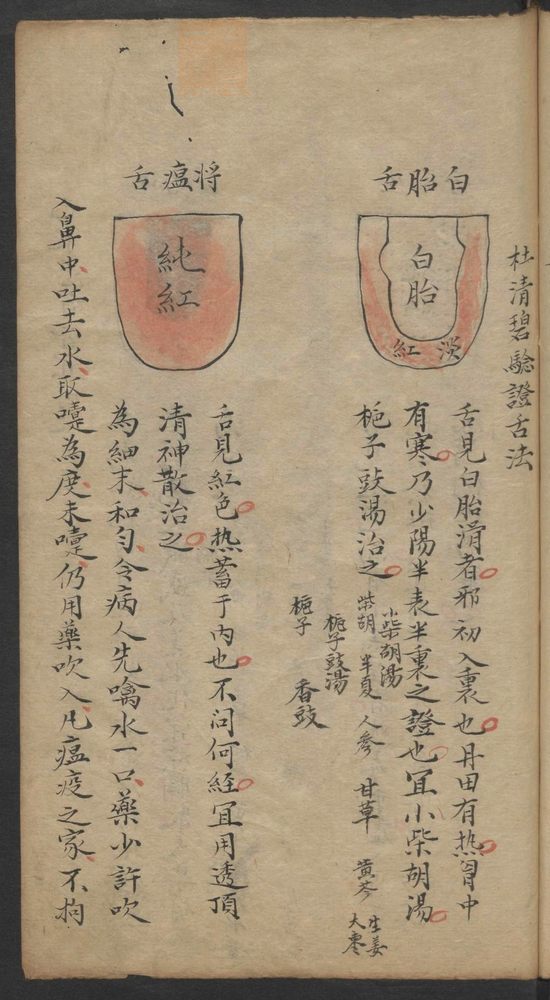 杜清碧驗證舌法
白胎舌
白胎
淡紅
舌見白胎滑者邪初入裏也丹田有热胷中
有寒乃少陽半表半裏之證也宜小柴胡湯
梔子豉湯治之
小柴胡湯
柴胡 半夏 人參 甘草 黄芩 生姜 大枣
梔子豉湯
梔子 香豉
将瘟舌
純紅
舌見紅色热蓄于内也不问何經宜用透頂
清神散治之
為細末和匀令病人先噙水一口藥少許吹
入鼻中吐去水取嚏為度未嚏仍用藥吹入凡瘟疫之家不拘